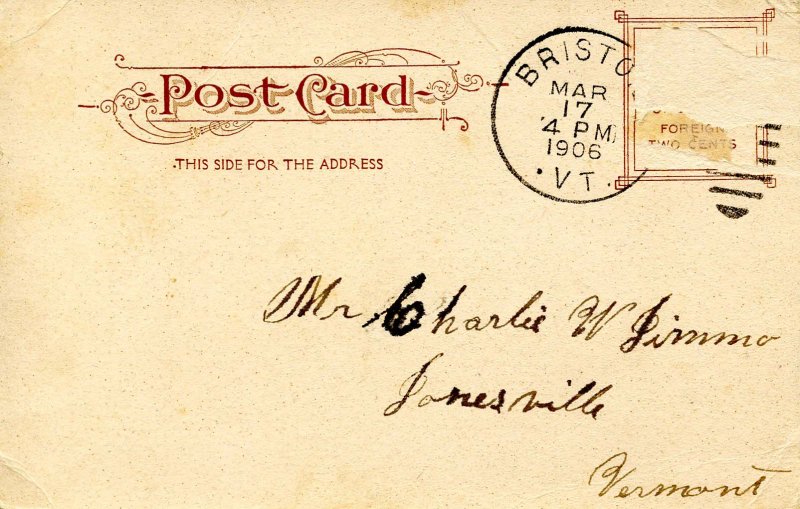 Post Card
THIS SIDE FOR THE ADDRESS
BRISTO
MAR
17
4 PM
1906
VT.
FOREIGN
TWO CENTS
Mr Charlie W Jimmo
Jonesville
Vermont